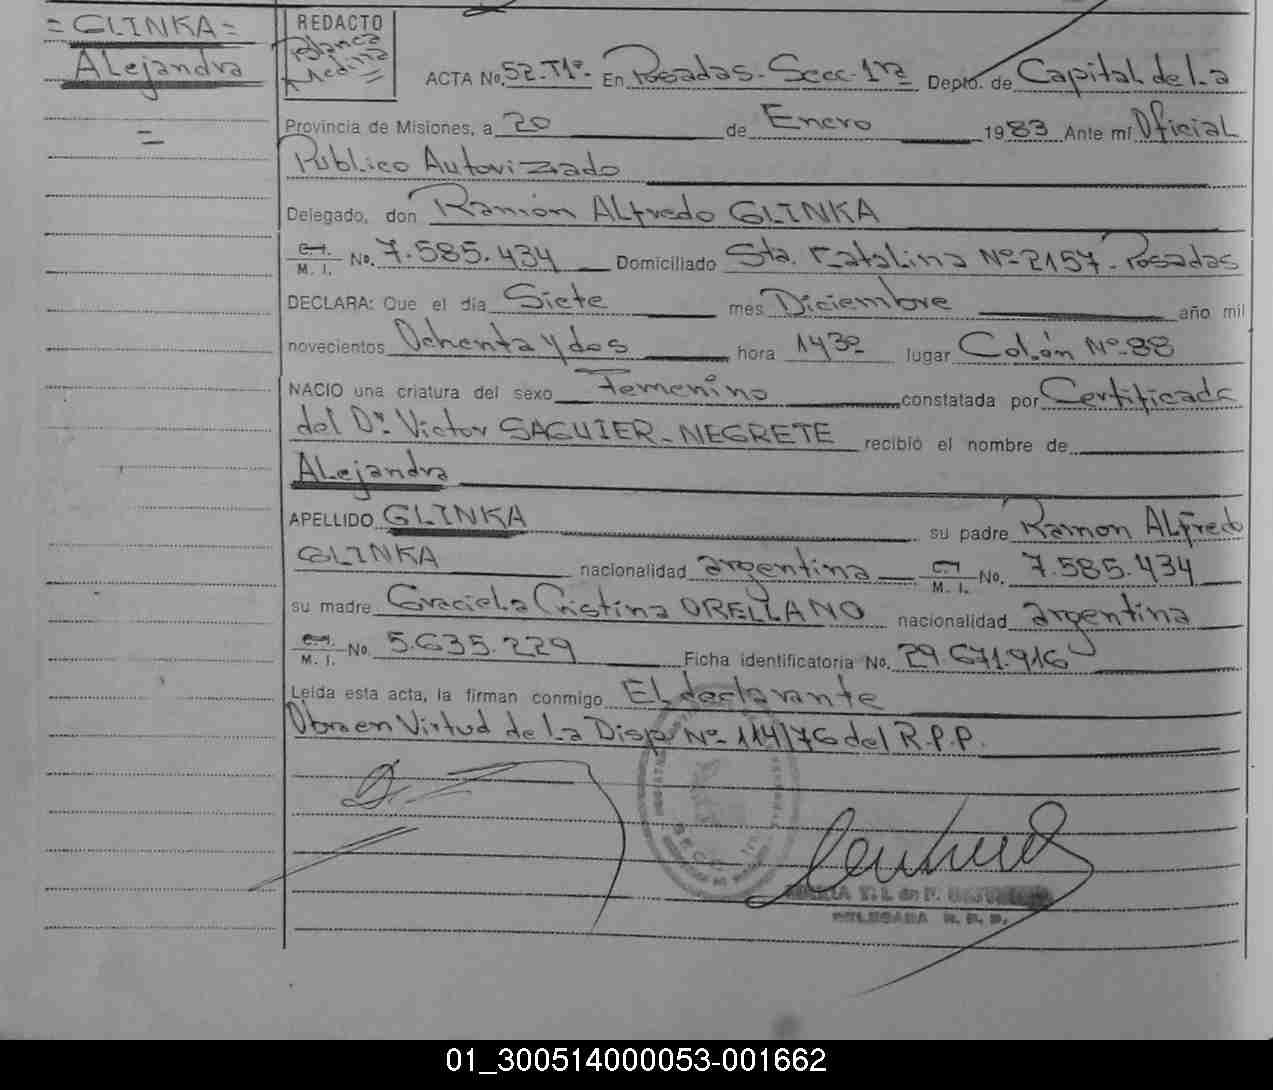 = GLINKA =
Alejandra
=
REDACTO
Blanca
Medina
=
ACTA No. 52. T1º. En Posadas. Secc. 1ra Depto. de Capital de La
Provincia de Misiones, a 20 de Enero 1983 Ante mí Oficial
Público Autorizado
Delegado, don Ramón Alfredo GLINKA
C. I. M. I. No. 7.585.434 Domiciliado Sta. Catalina Nº 2157. Posadas
DECLARA: Que el día Siete mes Diciembre año mil
novecientos Ochenta y dos hora 1430 lugar Colón Nº 88
NACIO una criatura del sexo Femenino constatada por Certificado
del Dr. Victor SAGUIER-NEGRETE recibió el nombre de
Alejandra
APELLIDO GLINKA su padre Ramon Alfredo
GLINKA nacionalidad argentina C. I. M. I. No. 7.585.434
su madre Graciela Cristina ORELLANO nacionalidad argentina
C. I. M. I. No. 5.635.229 Ficha identificatoria No. 29.671.916
Leída esta acta, la firman conmigo El declarante
Obra en Virtud de la Disp. Nº 114/76 del R.P.P.
DELEGADA R. P. P.
01_300514000053-001662